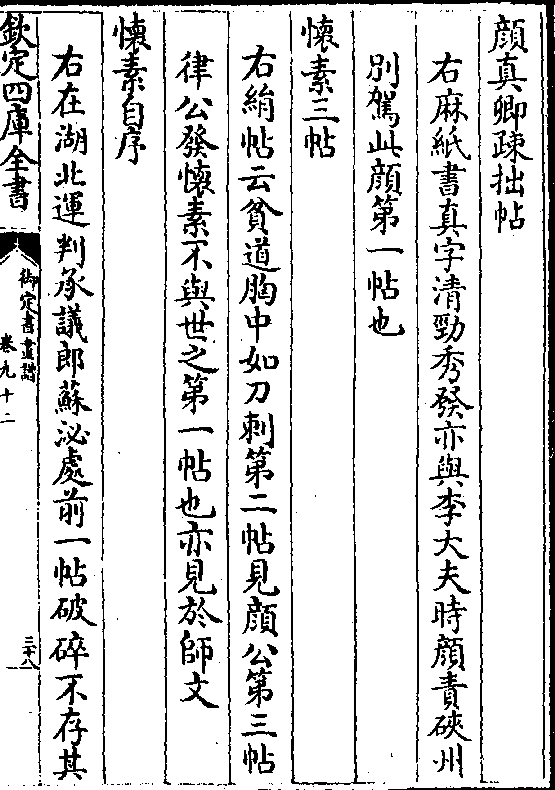 顔真卿疎拙帖
右麻紙書真字清勁秀發亦與李大夫時顔責硤州
别駕此顔第一帖也
懷素三帖
右絹帖云貧道胸中如刀刺第二帖見顔公第三帖
律公發懷素不與世之第一帖也亦見於師文
懷素自序
右在湖北運判承議郎蘇泌處前一帖破碎不存其
欽定四庫全書
御定書畫譜
卷九十二
三十八